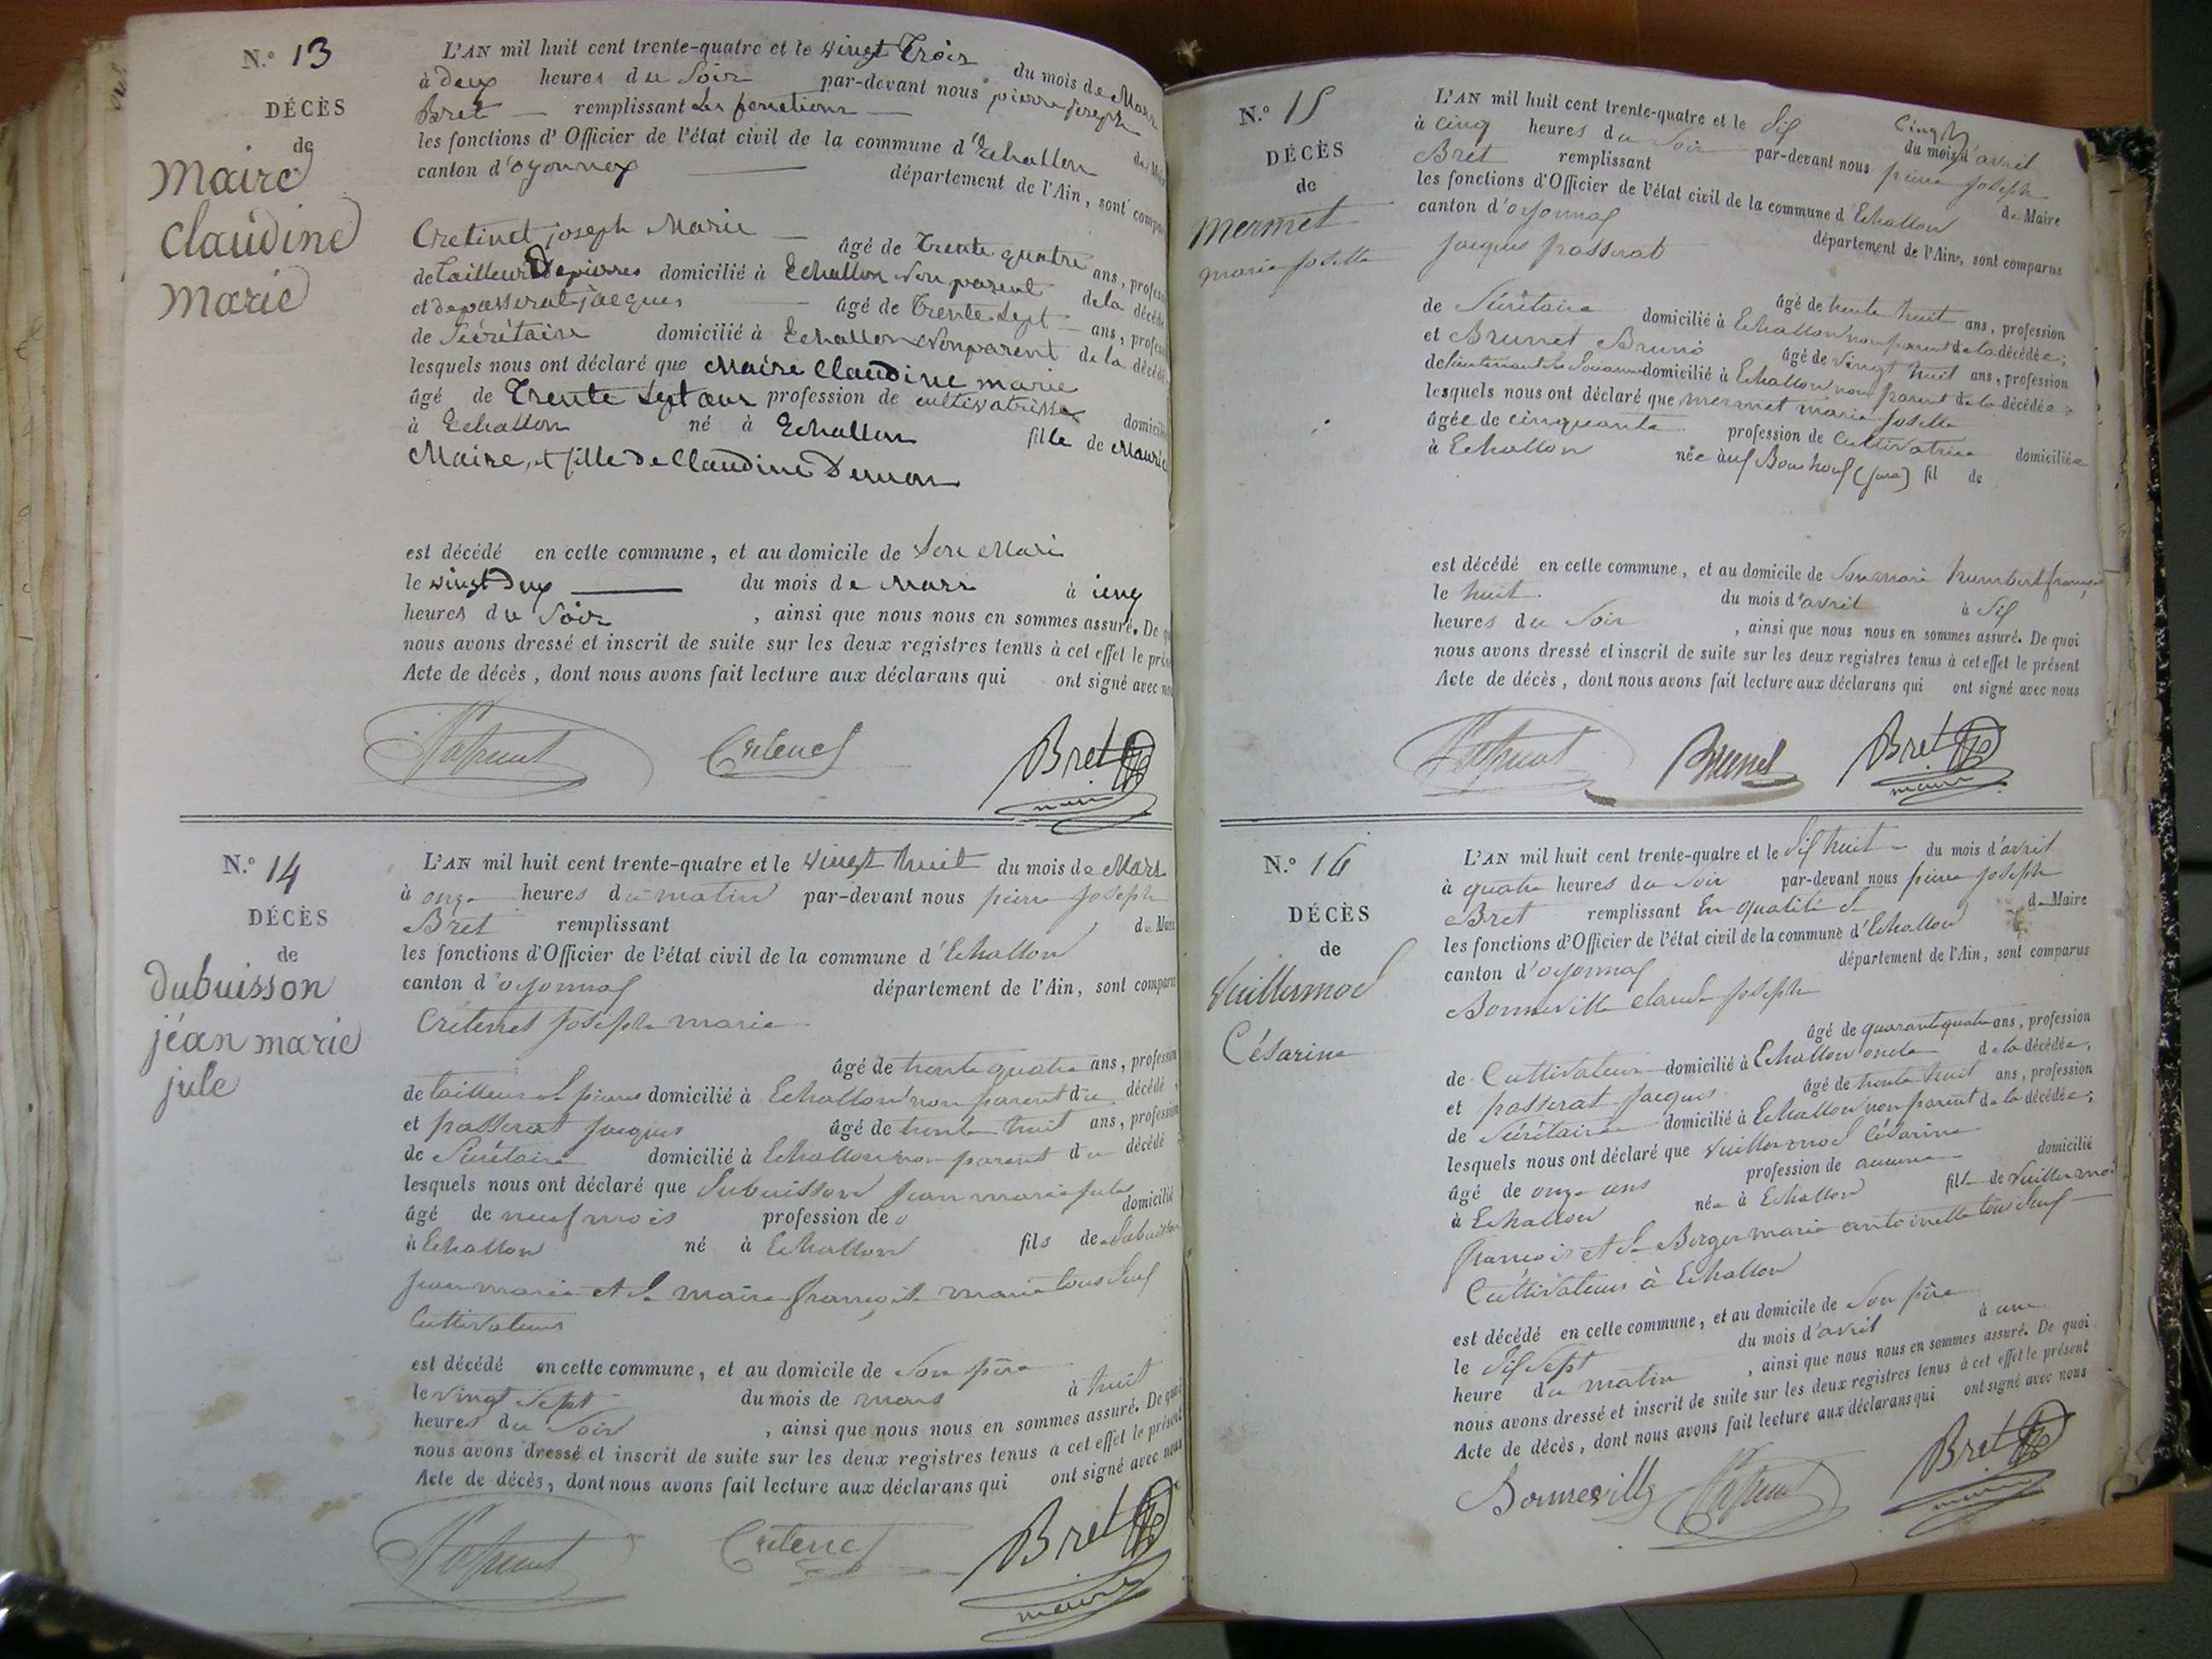 N.º 13
DÉCÈS
de
Maire
Claudine
Marie
L'AN mil huit cent trente-quatre et le vingt Trois du mois de Mars
à deux heures du Soir par-devant nous pierre joseph
Bret — remplissant Les fonctions — de Mai
les fonctions d'Officier de l'état civil de la commune d'Echallon
canton d'oyonnax département de l'Ain, sont compa
Cretinet joseph Marie — âgé de Trente quatre ans, profess
de Tailleur Depierres domicilié à Echallon Non parent de la décédé
et de passerat jacques âgé de Trente Sept — ans, profess
de Sécrétaire domicilié à Echallon Non parent de la décédé
lesquels nous ont déclaré que Maire Claudine marie
âgé de Trente Sept ans profession de cultivatrisse domicili
à Echallon né à Echallon fille de Mauric
Maire, et fille De Claudine
est décédé en cette commune, et au domicile de Son Mari
le vingt Deux du mois de Mars à
heures du Soir , ainsi que nous nous en sommes assuré. De q
nous avons dressé et inscrit de suite sur les deux registres tenus à cet effet le prés
Acte de décès, dont nous avons fait lecture aux déclarans qui ont signé avec no
Passerat Cretenet Bret
maire
N.º 14
DÉCÈS
de
dubuisson
jéan marie
jule
L'AN mil huit cent trente-quatre et le vingt huit du mois de Mars
à onze heures du matin par-devant nous pierre joseph
Bret remplissant de Mair
les fonctions d'Officier de l'état civil de la commune d'Echallon
canton d'oyonnax département de l'Ain, sont comparu
Crétenet Joseph marie
âgé de trente quatre ans, profession
de tailleur de pierres domicilié à Echallon non parent du décédé,
et passerat jacques âgé de trente huit ans, profession
de Sécrétaire domicilié à Echallon non parent du décédé
lesquels nous ont déclaré que dubuisson jean marie jules
âgé de neuf mois profession de domicilié
à Echallon né à Echallon fils de dubuisson
jean marie et de maire françoise marie tous deux
Cultivateurs
est décédé en cette commune, et au domicile de Son père
le vingt Sept du mois de mars à huit
heures du Soir , ainsi que nous nous en sommes assuré. De quoi
nous avons dressé et inscrit de suite sur les deux registres tenus à cet effet le présent
Acte de décès, dont nous avons fait lecture aux déclarans qui ont signé avec nous
Passerat Cretenet Bret
maire
N.º 15
DÉCÈS
de
mermet
marie josette
L'AN mil huit cent trente-quatre et le dix du mois d'avril
à cinq heures du Soir par-devant nous pierre joseph
Bret remplissant de Maire
les fonctions d'Officier de l'état civil de la commune d'Echallon
canton d'oyonnax département de l'Ain, sont comparus
jacques passerat
âgé de trente huit ans, profession
de Sécrétaire domicilié à Echallon non parent de la décédée;
et Brunet Bruno âgé de vingt huit ans, profession
de lieutenant de Douane domicilié à Echallon non parent de la décédée;
lesquels nous ont déclaré que mermet marie josette
âgée de cinquante profession de Cultivatrice domiciliée
à Echallon née aux Bouchoux (jura) fil de
est décédé en cette commune, et au domicile de Son mari humbert françois
le huit du mois d'avril à dix
heures du Soir , ainsi que nous nous en sommes assuré. De quoi
nous avons dressé et inscrit de suite sur les deux registres tenus à cet effet le présent
Acte de décès, dont nous avons fait lecture aux déclarans qui ont signé avec nous
Passerat Brunet Bret
maire
N.º 16
DÉCÈS
de
Vuillermoz
Césarine
L'AN mil huit cent trente-quatre et le dix huit — du mois d'avril
à quatre heures du Soir par-devant nous pierre joseph
Bret remplissant En qualité de de Maire
les fonctions d'Officier de l'état civil de la commune d'Echallon
canton d'oyonnax département de l'Ain, sont comparus
Bonneville claude joseph
âgé de quarante quatre ans, profession
de Cultivateur domicilié à Echallon oncle de la décédée,
et passerat jacques âgé de trente huit ans, profession
de Sécrétaire domicilié à Echallon non parent de la décédée;
lesquels nous ont déclaré que Vuillermoz Césarine
âgé de onze ans profession de aucune domicilié
à Echallon née à Echallon fille de Vuillermoz
françois et de Berger marie antoinette tous deux
Cultivateurs à Echallon
est décédé en cette commune, et au domicile de Son père
le dix Sept du mois d'avril à une
heure du matin , ainsi que nous nous en sommes assuré. De quoi
nous avons dressé et inscrit de suite sur les deux registres tenus à cet effet le présent
Acte de décès, dont nous avons fait lecture aux déclarans qui ont signé avec nous
Bonneville Passerat Bret
maire